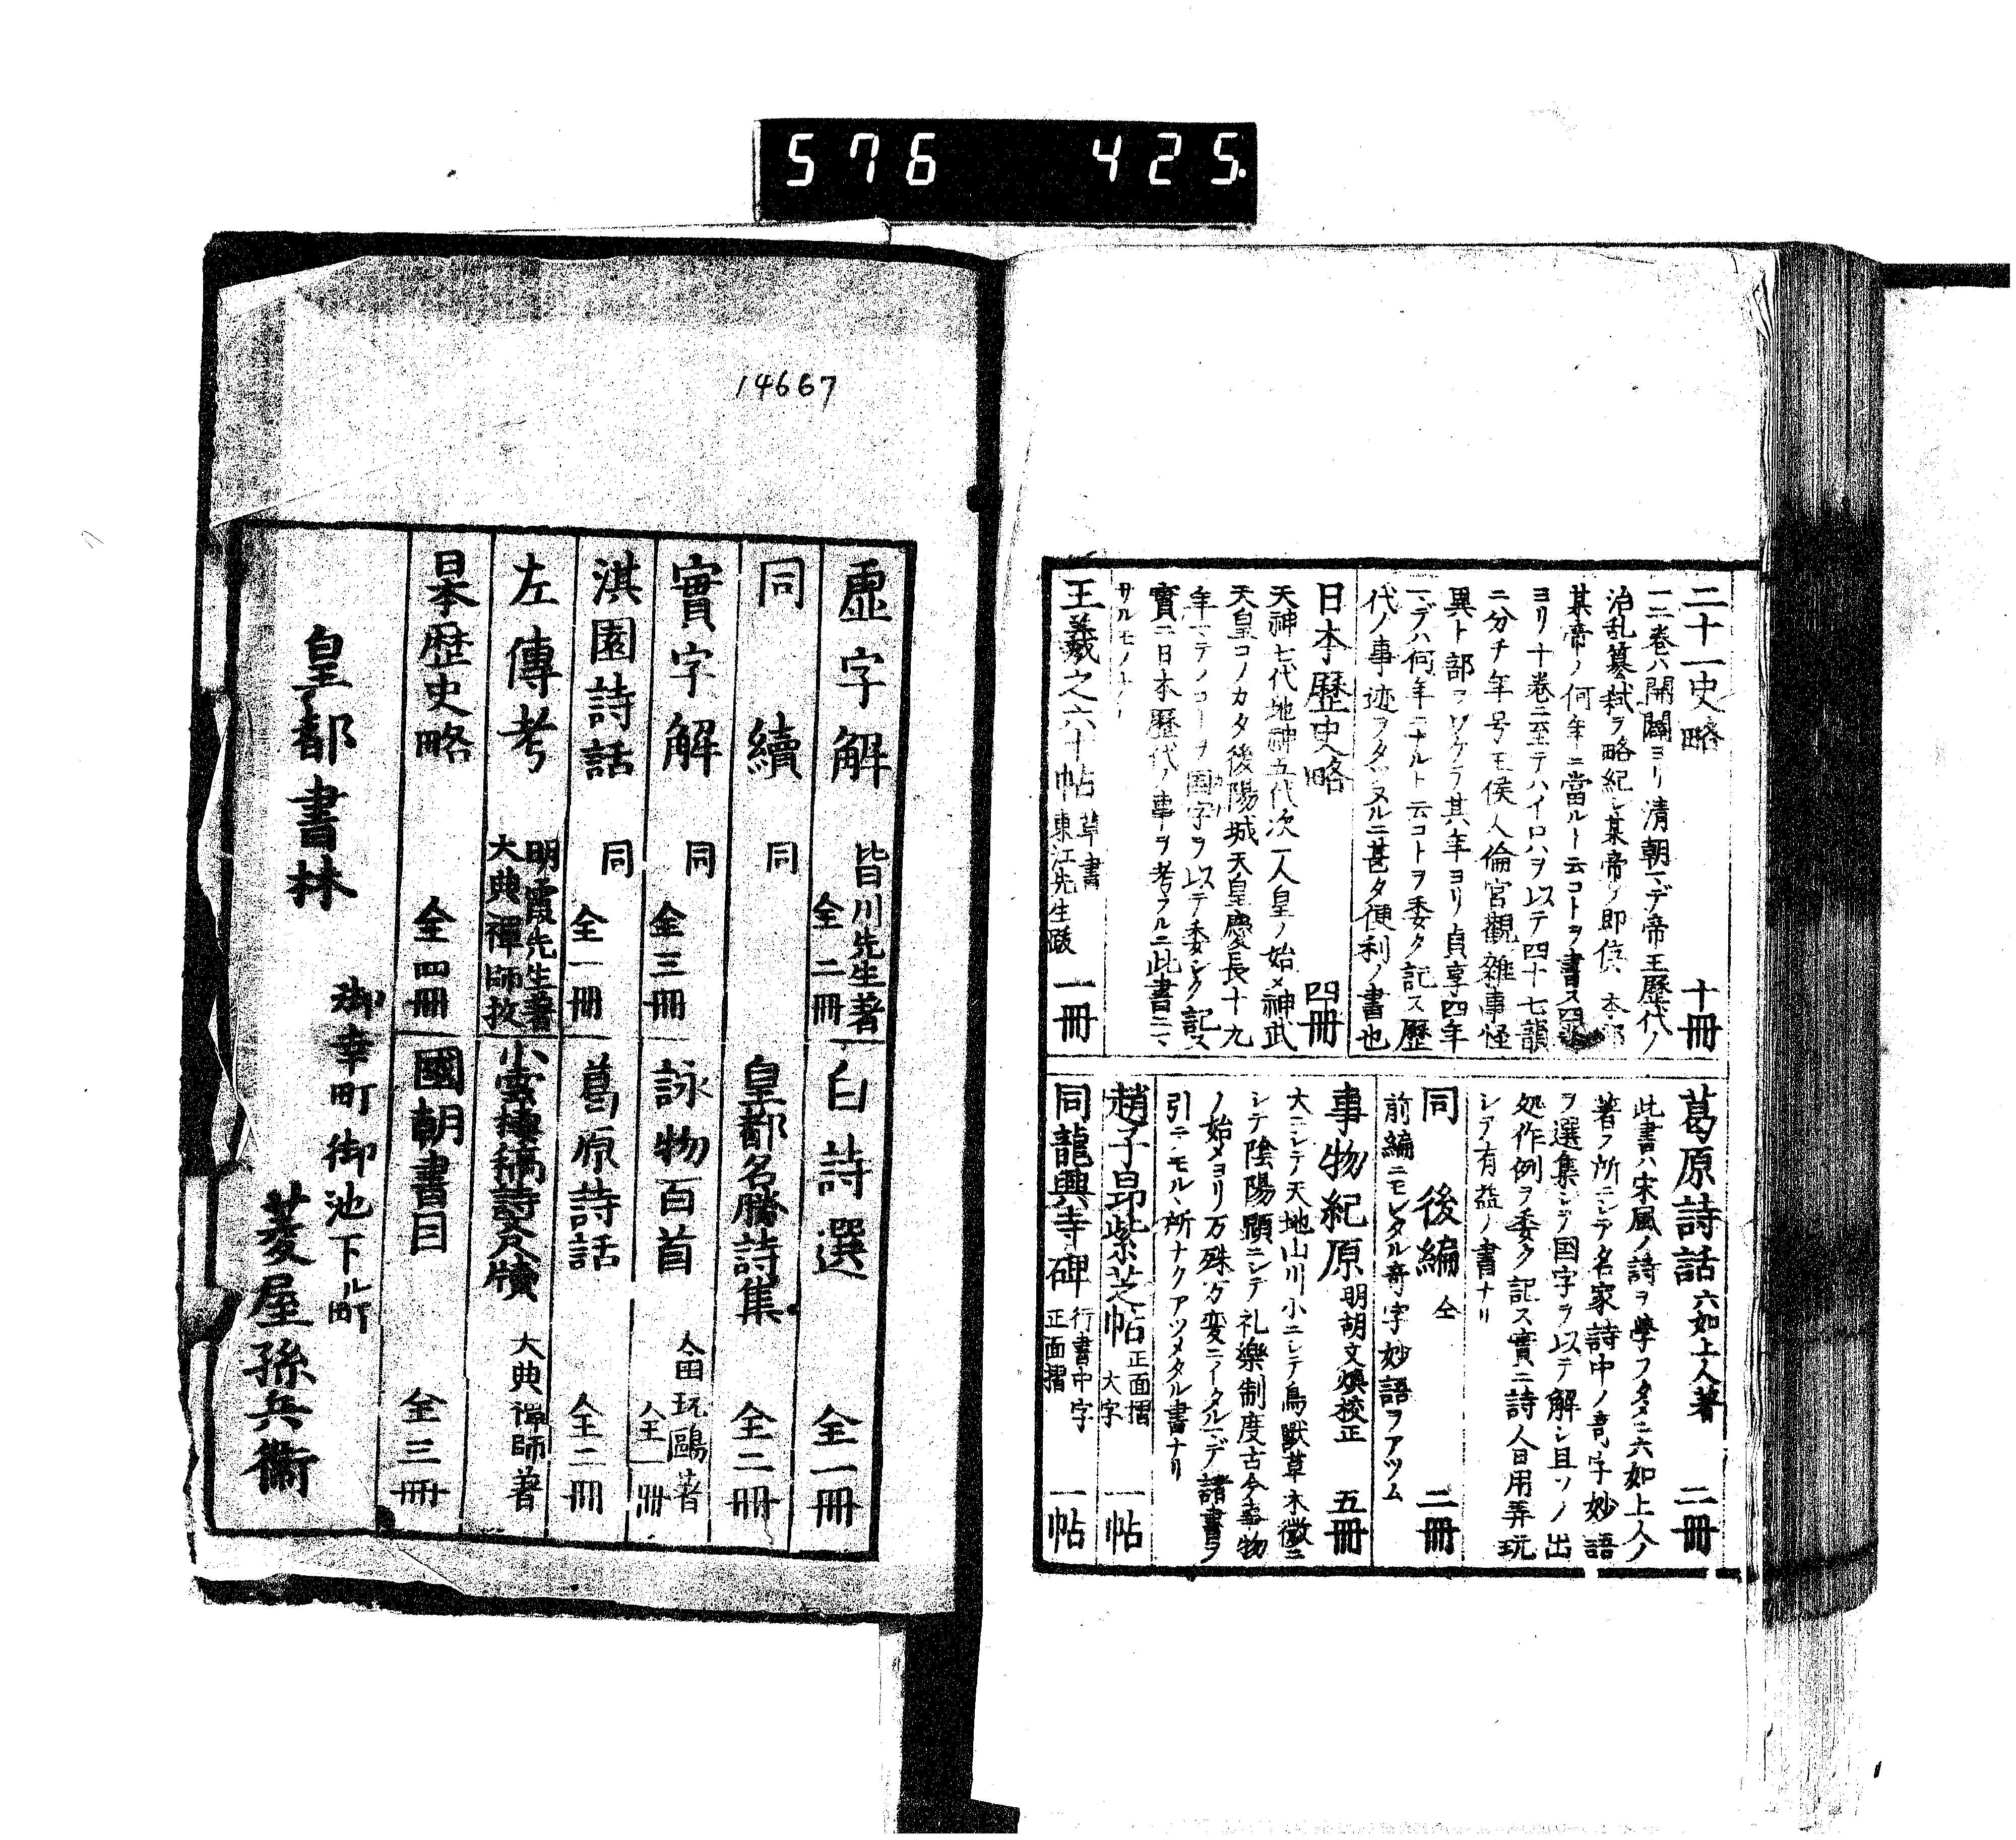 576 425
二十一史略 十冊
一二巻ハ開闢ヨリ清朝マデ帝王歴代ノ
治乱簒弑ヲ略紀シ某帝ノ即位 本邦
某帝ノ何年ニ當ルト云コトヲ書ス四巻
ヨリ十巻ニ至テハイロハヲ以テ四十七韻
ニ分チ年号王侯人倫官觀雑事怪
異ト部ヲワケテ其年ヨリ貞享四年
マデハ何年ニナルト云コトヲ委ク記ス歴
代ノ事迹ヲタヅヌルニ甚タ便利ノ書也
日本歴史略 四冊
天神七代地神五代次人皇ノ始メ神武
天皇コノカタ後陽城天皇慶長十九
年マテノコトヲ国字ヲ以テ委シク記ス
實ニ日本歴代ノ事ヲ考フルニ此書ニマ
サルモノナシ
王羲之六十帖 草書 東江先生跋 一冊
葛原詩話 六如上人著 二冊
此書ハ宋風ノ詩ヲ學フタメニ六如上人ノ
著ス所ニシテ名家詩中ノ奇字妙語
ヲ選集シテ国字ヲ以テ解シ且ソノ出
処作例ヲ委ク記ス實ニ詩人日用弄玩
シテ有益ノ書ナリ
同 後編 仝 二冊
前編ニモレタル奇字妙語ヲアツム
事物紀原 明胡文煥校正 五冊
大ニシテ天地山川小ニシテ鳥獣草木微ニ
シテ陰陽顕ニシテ礼樂制度古今事物
ノ始メヨリ万殊万変ニイタルマデ諸書ヲ
引ニモルヽ所ナクアツメタル書ナリ
趙子昂紫芝帖 正面摺 大字 一帖
同龍興寺碑 行書中字 正面摺 一帖
14667
虚字解 皆川先生著 全二冊
白詩選 全一冊
同續 同
皇都名勝詩集 全二冊
實字解 同 全三冊
詠物百首 畑玩鷗著 全一冊
淇園詩話 同 全一冊
葛原詩話 全二冊
左傳考 明霞先生著 大典禪師校
小雲棲稿詩文尺牘 大典禪師著
日本歴史略 全四冊
國朝書目 全三冊
皇都書林
御幸町御池下ル町
菱屋孫兵衞